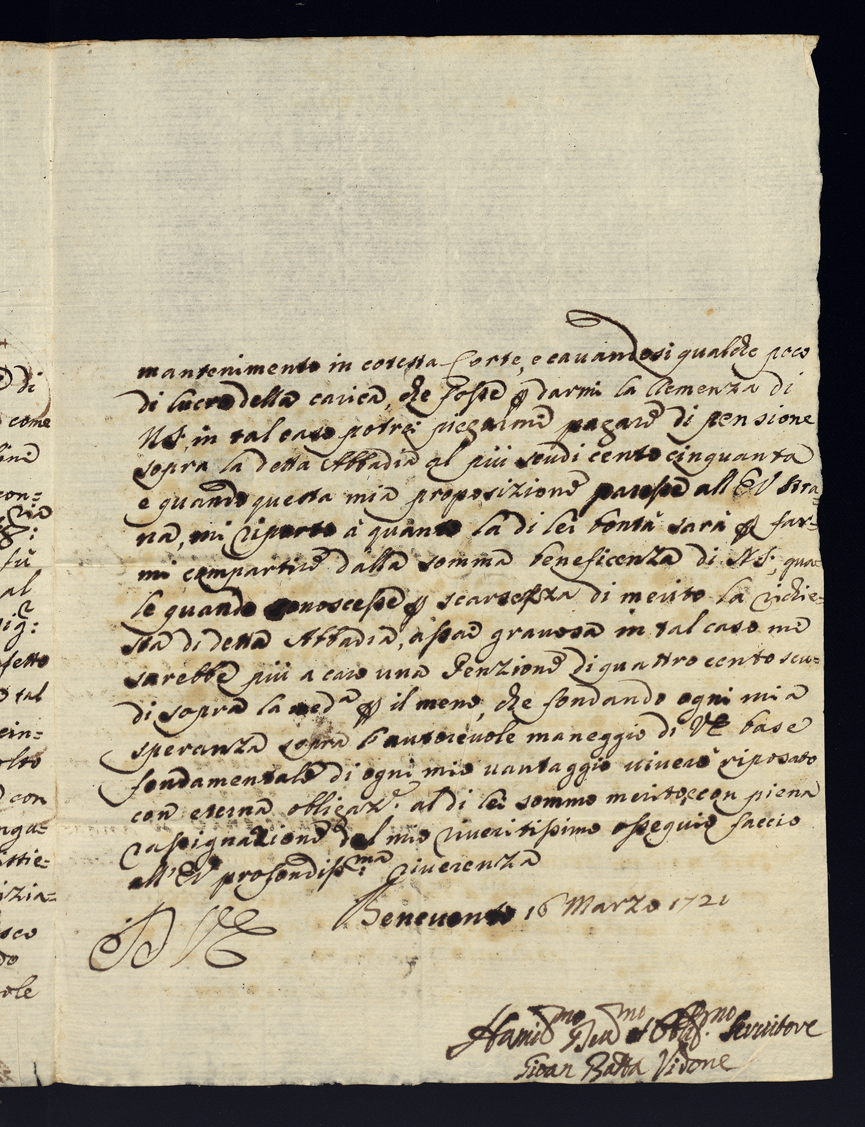 di
come
con=
fù
al
fetto
tal
ein=
olto
con
ngu=
ttie=
izia=
sco
do
ole
mantenimento in cotesta Corte, e cavandosi qualche poco
di lucro della carica, che fosse p darmi la Clemenza di
NS, in tal caso potrei piegarme pagare di pensione
sopra la detta Abbadia al più scudi cento cinquanta
e quando questa mia proposizione paresse all'EV stra=
na, mi riporto à quanto la di lei bontà sarà p far=
mi compartire dalla somma beneficenza di NS, qua=
le quando conoscesse p scarsezza di merito la richie=
sta di detta Abbadia, assai gravosa in tal caso me
sarebbe più a caro una Penzione di quattrocento scu=
di sopra la med.a p il meno, che fondando ogni mia
speranza sopra l'autorevole maneggio di VE base
fondamentale di ogni mio vantaggio viverò riposato
con eterna obligaz.e al di lei sommo merito, e con piena
rassignazione del mio riveritissimo ossequio faccio
all'EV profondiss.ma riverenza
Benevento 16 Marzo 1721
D VE
Humil.mo Dev.mo et Oblig.mo Servitore
Gioan Batta Vidone